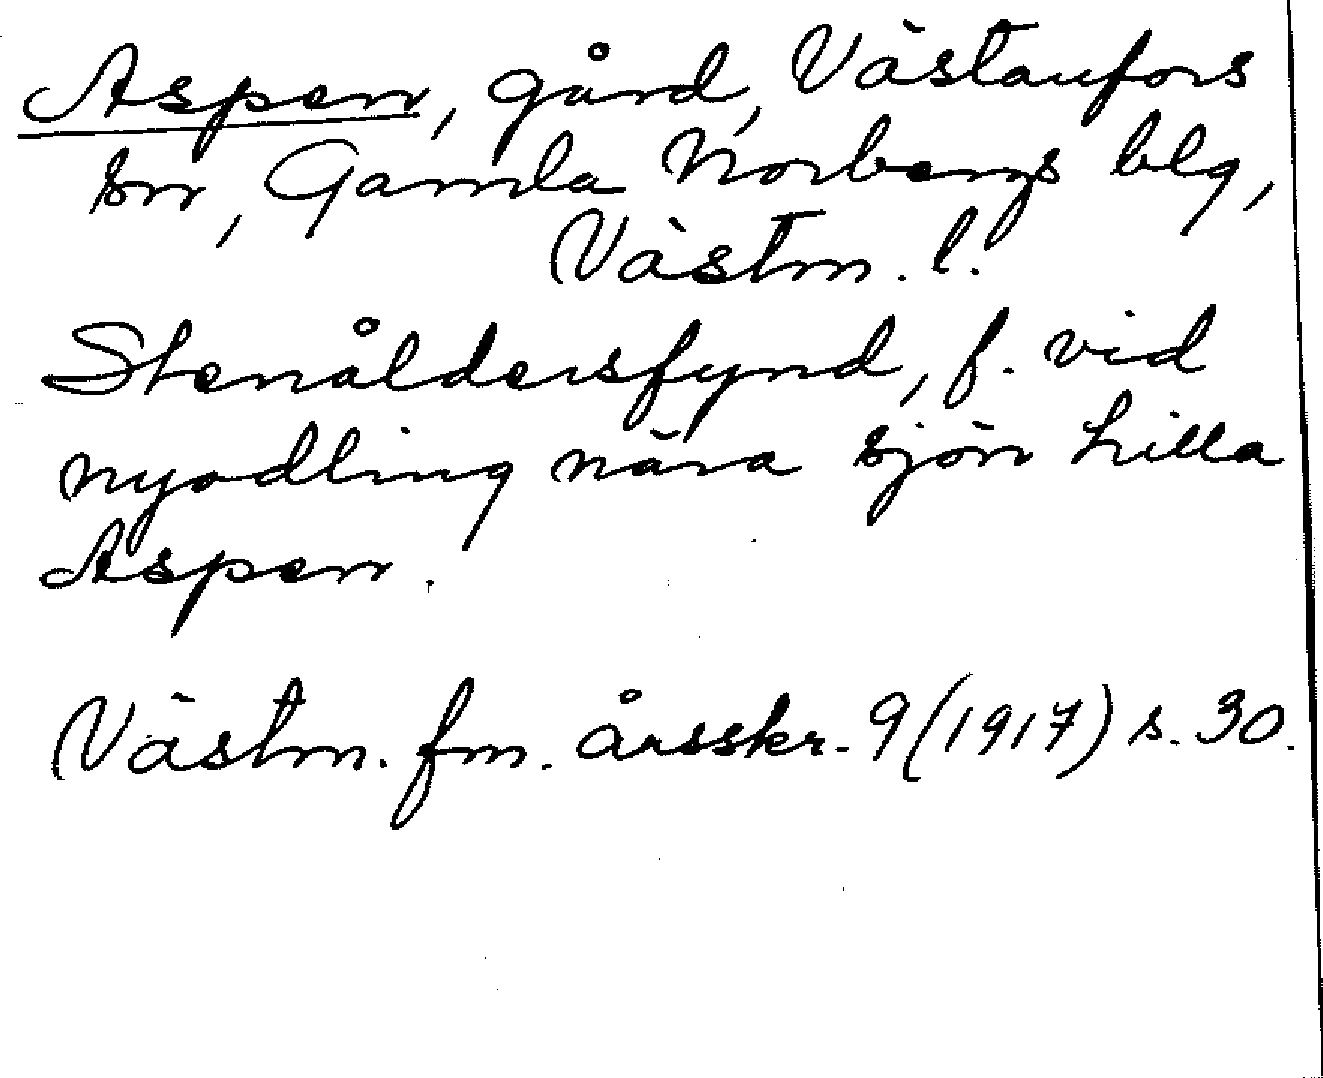 Aspen, gård, Västanfors
sn, Gamla Norbergs blg,
Västm. l.
Stenåldersfynd, f. vid
nyodling nära sjön Lilla
Aspen.
Västm. fm. årsskr. 9 (1917) s. 30.